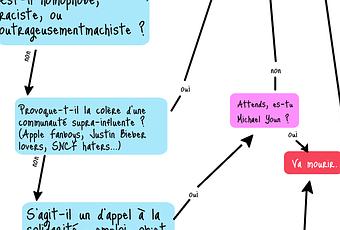 est-il homophobe,
raciste, ou
outrageusementmachiste ?
non
oui
non
Provoque-t-il la colère d'une
communauté supra-influente ?
(Apple fanboys, Justin Bieber
lovers, SNCF haters...)
Attends, es-tu
Michael Youn ?
oui
Va mourir.
non
oui
S'agit-il un d'appel à la
solidarité, emploi, objet